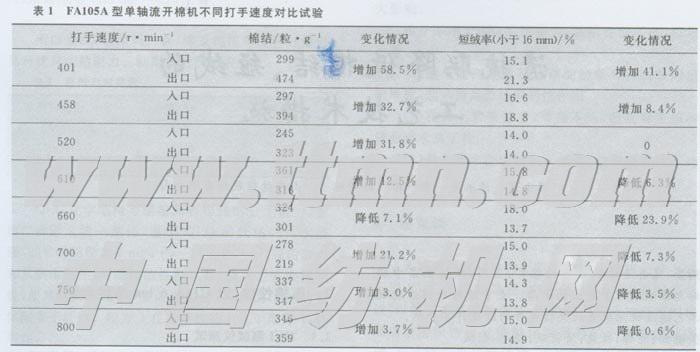 表 1 FA105A 型单轴流开棉机不同打手速度对比试验
打手速度/r·min⁻¹ 棉结/粒·g⁻¹ 变化情况 短绒率(小于 16 mm)/% 变化情况
入口 299 15.1
401 增加 58.5% 增加 41.1%
出口 474 21.3
入口 297 16.6
458 增加 32.7% 增加 8.4%
出口 394 18.8
入口 245 14.0
520 增加 31.8% 0
出口 323 14.0
入口 361 15.8
610 增加 12.5% 降低 6.3%
出口 316 14.8
入口 324 18.0
660 降低 7.1% 降低 23.9%
出口 301 13.7
入口 278 15.0
700 增加 21.2% 降低 7.3%
出口 219 13.9
入口 337 14.3
750 增加 3.0% 降低 3.5%
出口 347 13.8
入口 346 15.0
800 增加 3.7% 降低 0.6%
出口 359 14.9
www.ttmn.com
中国纺机网